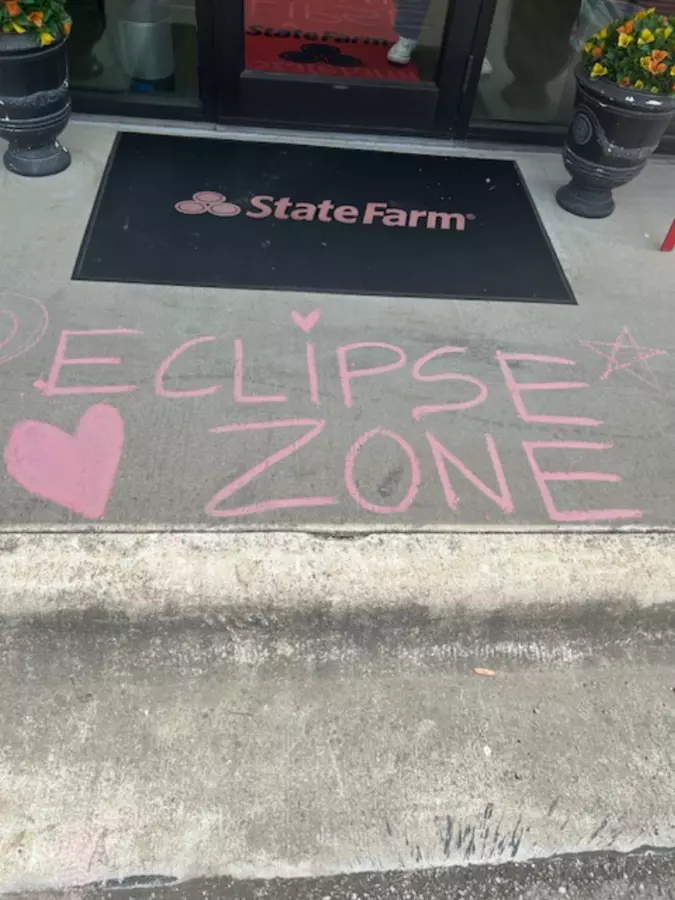 State Farm
StateFarm®
ECLiPSE
ZONE